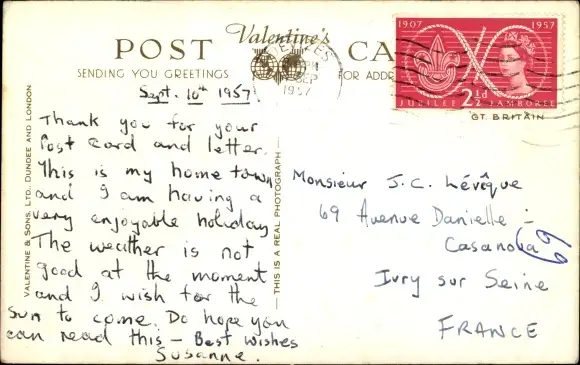 Valentine's
POST CARD
SENDING YOU GREETINGS
FOR ADDR
1907 1957
JUBILEE 2½d JAMBOREE
GT. BRITAIN
PM
SEP
1957
VALENTINE & SONS, LTD., DUNDEE AND LONDON
THIS IS A REAL PHOTOGRAPH
Sept. 10th 1957
Thank you for your
Post Card and letter.
This is my home town
and I am having a
very enjoyable holiday
The weather is not
good at the moment
and I wish for the
Sun to come. Do hope you
can read this – Best wishes
Susanne.
Monsieur J.C. Lévêque
69 Avenue Danielle -
Casanova
69
Ivry sur Seine
FRANCE